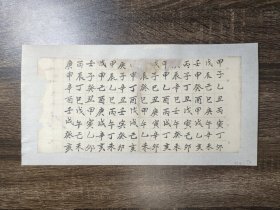 甲子乙丑丙寅丁卯
戊辰己巳庚午辛未
壬申癸酉甲戌乙亥
丙子丁丑戊寅己卯
庚辰辛巳壬午癸未
甲申乙酉丙戌丁亥
戊子己丑庚寅辛卯
壬辰癸巳甲午乙未
丙申丁酉戊戌己亥
庚子辛丑壬寅癸卯
甲辰乙巳丙午丁未
戊申己酉庚戌辛亥
壬子癸丑甲寅乙卯
丙辰丁巳戊午己未
庚申辛酉壬戌癸亥